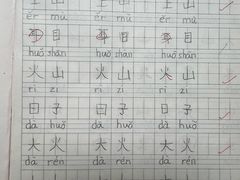 ěr mù ěr mù ěr mù
耳目 耳目 耳目
huǒ shān huǒ shān huǒ shān
火山 火山 火山
rì zi rì zi rì zi
日子 日子 日子
dà huǒ dà huǒ dà huǒ
大火 大火 大火
dà rén dà rén dà rén